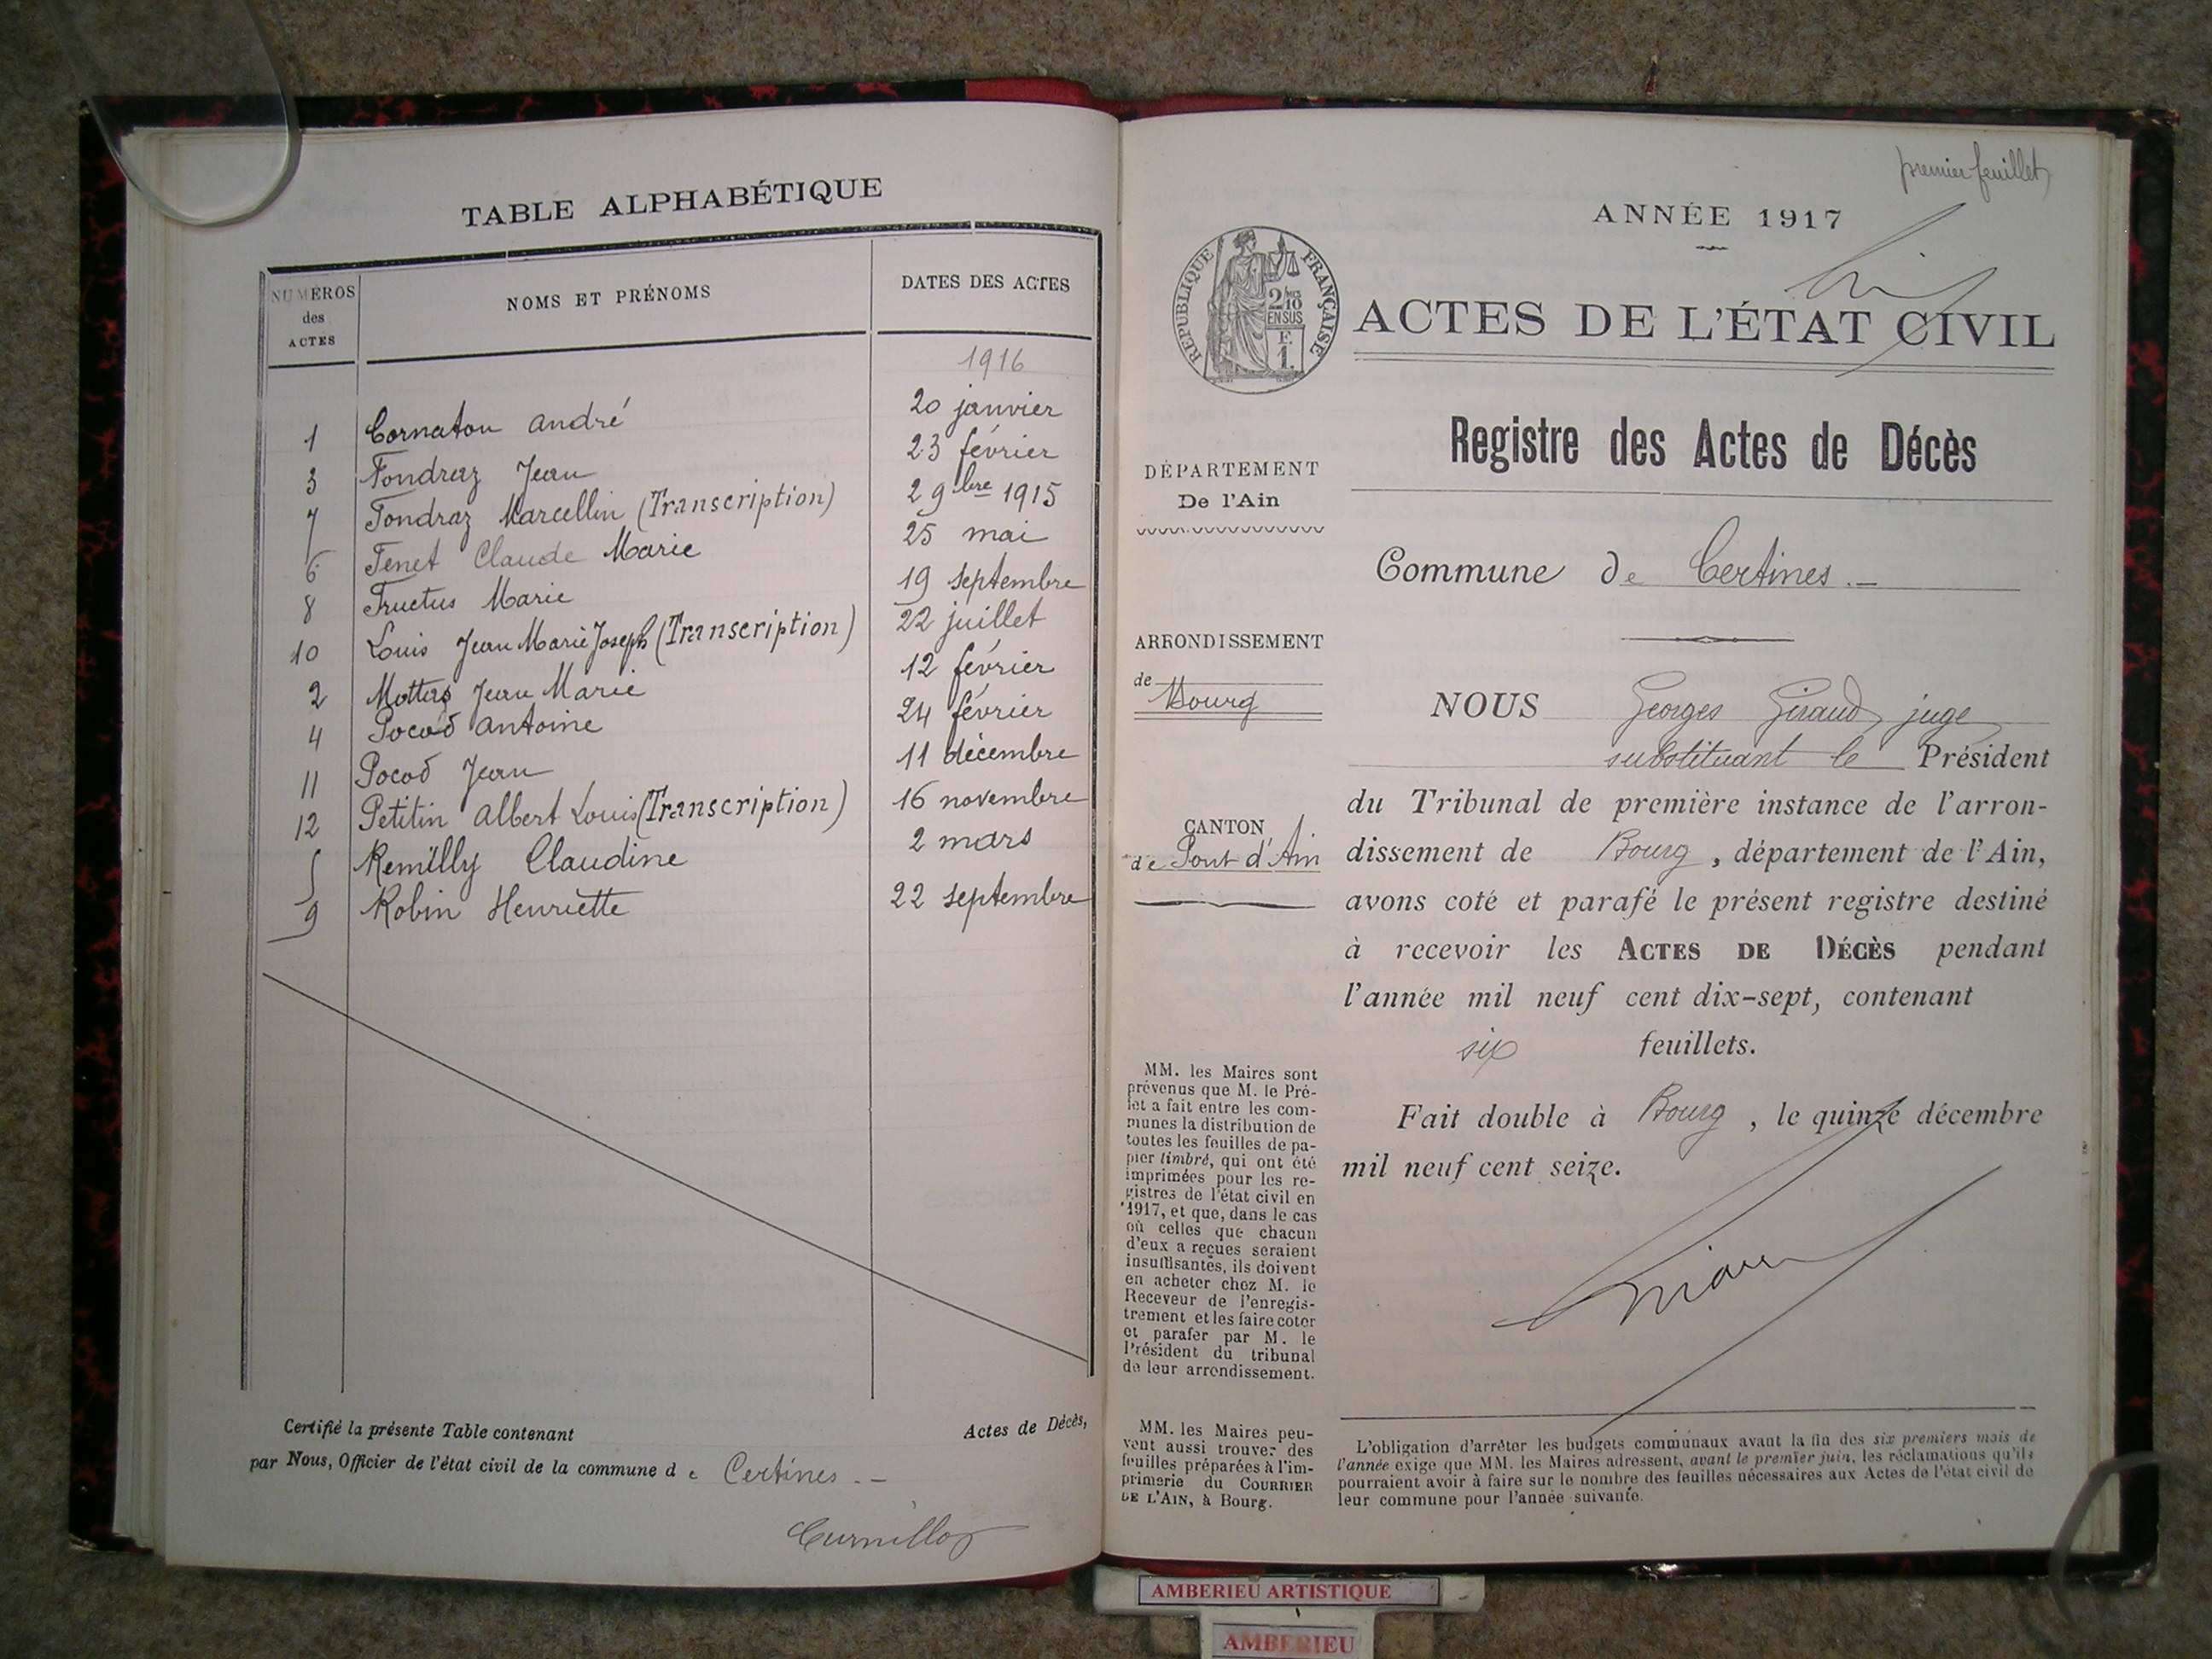 TABLE ALPHABÉTIQUE
NUMÉROS des ACTES
NOMS ET PRÉNOMS
DATES DES ACTES
1916
1 Cornaton André 20 janvier
3 Fondraz Jean 23 février
7 Fondraz Marcellin (Transcription) 2 9bre 1915
6 Fenet Claude Marie 25 mai
8 Fructus Marie 19 septembre
10 Louis Jean Marie Joseph (Transcription) 22 juillet
2 Mottas Jean Marie 12 février
4 Pocod Antoine 24 février
11 Pocod Jean 11 décembre
12 Petitin Albert Louis (Transcription) 16 novembre
5 Remilly Claudine 2 mars
9 Robin Henriette 22 septembre
Certifié la présente Table contenant Actes de Décès,
par Nous, Officier de l'état civil de la commune de Certines. -
premier feuillet
ANNÉE 1917
RÉPUBLIQUE FRANÇAISE
2/10 EN SUS
F. 1.
ACTES DE L'ÉTAT CIVIL
Registre des Actes de Décès
DÉPARTEMENT
De l'Ain
Commune de Certines. -
ARRONDISSEMENT
de Bourg
CANTON
de Pont d'Ain
NOUS Georges Giraud, juge
substituant le Président
du Tribunal de première instance de l'arron-
dissement de Bourg, département de l'Ain,
avons coté et parafé le présent registre destiné
à recevoir les ACTES DE DÉCÈS pendant
l'année mil neuf cent dix-sept, contenant
six feuillets.
Fait double à Bourg, le quinze décembre
mil neuf cent seize.
MM. les Maires sont
prévenus que M. le Pré-
fet a fait entre les com-
munes la distribution de
toutes les feuilles de pa-
pier timbré, qui ont été
imprimées pour les re-
gistres de l'état civil en
1917, et que, dans le cas
où celles que chacun
d'eux a reçues seraient
insuffisantes, ils doivent
en acheter chez M. le
Receveur de l'enregis-
trement et les faire coter
et parafer par M. le
Président du tribunal
de leur arrondissement.
MM. les Maires peu-
vent aussi trouver des
feuilles préparées à l'im-
primerie du COURRIER
DE L'AIN, à Bourg.
L'obligation d'arrêter les budgets communaux avant la fin des six premiers mois de
l'année exige que MM. les Maires adressent, avant le premier juin, les réclamations qu'ils
pourraient avoir à faire sur le nombre des feuilles nécessaires aux Actes de l'état civil de
leur commune pour l'année suivante.
AMBERIEU ARTISTIQUE
AMBERIEU